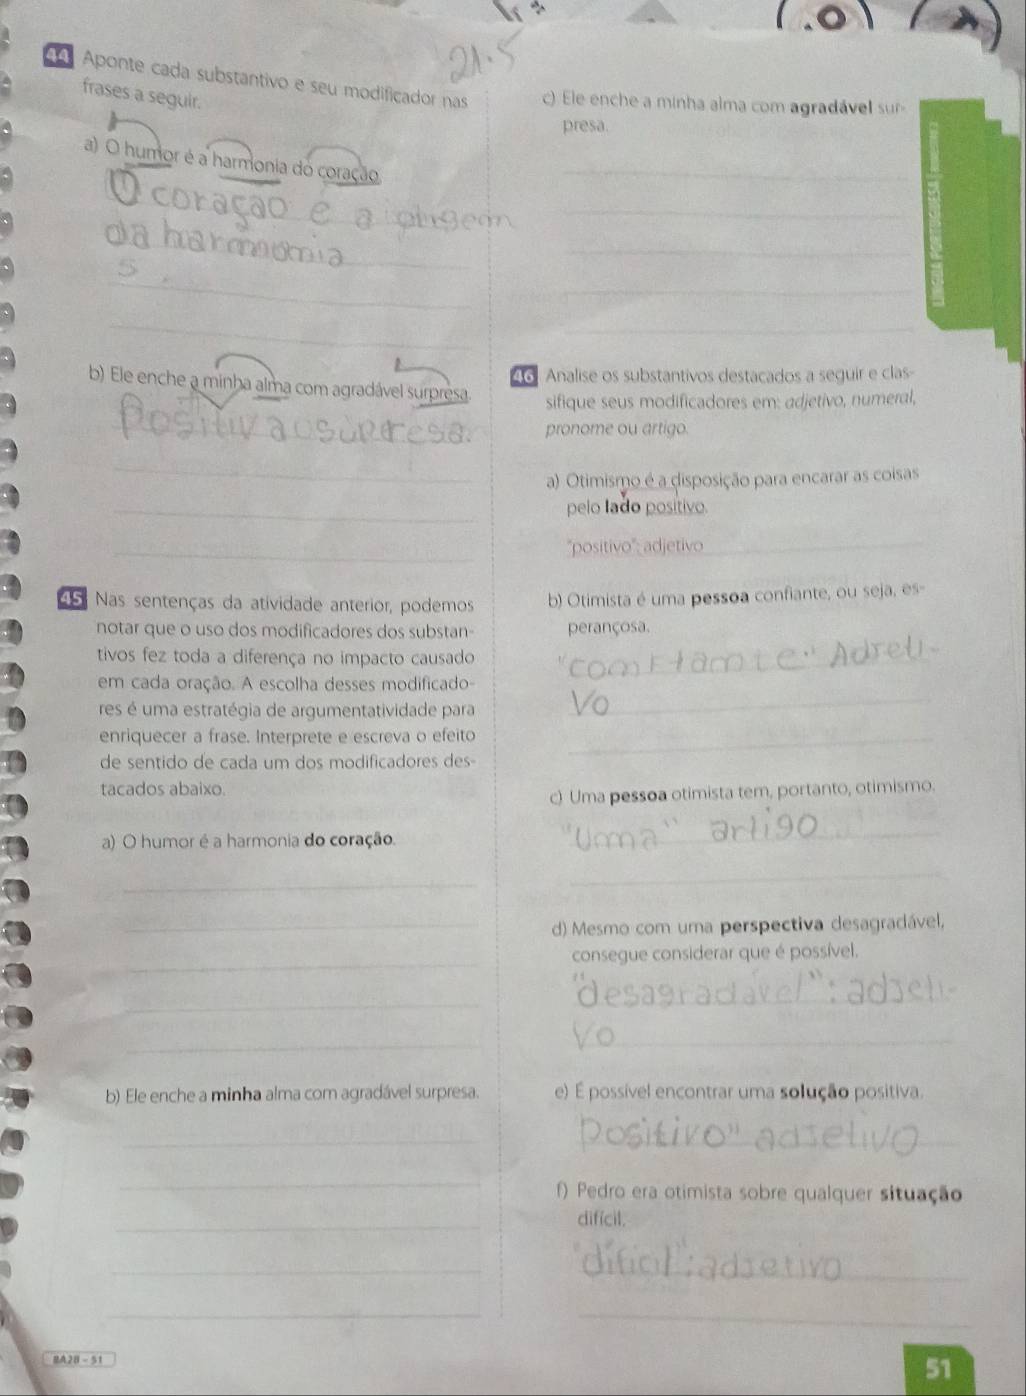 21.5
44 Aponte cada substantivo e seu modificador nas
frases a seguir.
a) O humor é a harmonia do coração.
O coração e a origem
da harmonia
s
b) Ele enche a minha alma com agradável surpresa.
Positiva surpresa.
45 Nas sentenças da atividade anterior, podemos
notar que o uso dos modificadores dos substan-
tivos fez toda a diferença no impacto causado
em cada oração. A escolha desses modificado-
res é uma estratégia de argumentatividade para
enriquecer a frase. Interprete e escreva o efeito
de sentido de cada um dos modificadores des-
tacados abaixo.
a) O humor é a harmonia do coração.
b) Ele enche a minha alma com agradável surpresa.
c) Ele enche a minha alma com agradável sur-
presa.
LÍNGUA PORTUGUESA
46 Analise os substantivos destacados a seguir e clas-
sifique seus modificadores em: adjetivo, numeral,
pronome ou artigo.
a) Otimismo é a disposição para encarar as coisas
pelo lado positivo.
"positivo": adjetivo
b) Otimista é uma pessoa confiante, ou seja, es-
perançosa.
"comfiamte" Adreti-
vo
c) Uma pessoa otimista tem, portanto, otimismo.
"Uma" artigo
d) Mesmo com uma perspectiva desagradável,
consegue considerar que é possível.
"desagradavel": adjeti-
vo
e) É possível encontrar uma solução positiva.
Positivo" adjetivo
f) Pedro era otimista sobre qualquer situação
difícil.
"difícil": adjetivo
8A2B - 51
51